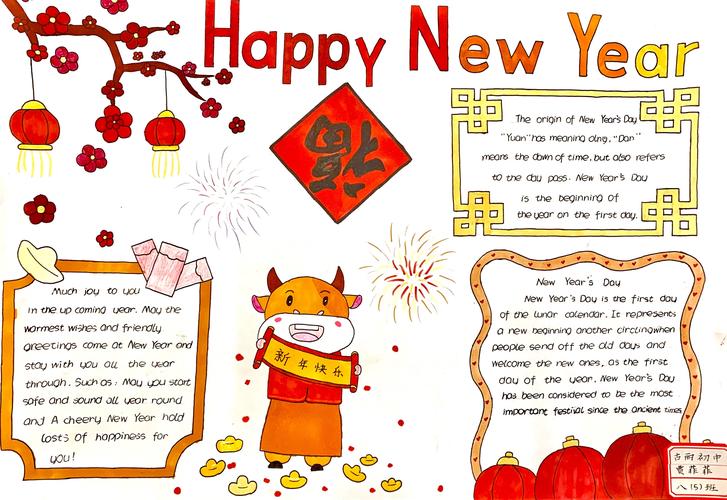 Happy New Year
福
The origin of New Year's Day
"Yuan" has meaning ding, "Dan"
means the dawn of time, but also refers
to the day pass. New Year's Day
is the beginning of
the year on the first day.
Much joy to you
in the up coming year. May the
warmest wishes and friendly
greetings come at New Year and
stay with you all the year
through. Such as: May you start
safe and sound all year round
and A cheery New Year hold
losts of happiness for
you!
新年快乐
New Year's Day
New Year's Day is the first day
of the lunar calendar. It represents
a new beginning another circling when
people send off the old days and
welcome the new ones, as the first
day of the year. New Year's Day
has been considered to be the most
important festival since the ancient times
古耐初中
贾菲菲
八(5)班